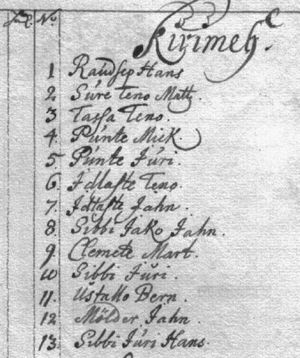 No.
Kirimeh.
1 Raudsep Hans
2 Sure Teno Matz.
3 Tassa Teno.
4 Pünte Mick
5 Pünte Jüri.
6. Teno.
7. Jahn.
8 Sibbi Jako Jahn.
9. Clemete Mart.
10 Sibbi Jüri.
11. Ustallo Bern.
12 Mölder Jahn
13. Sibbi Jüri Hans.